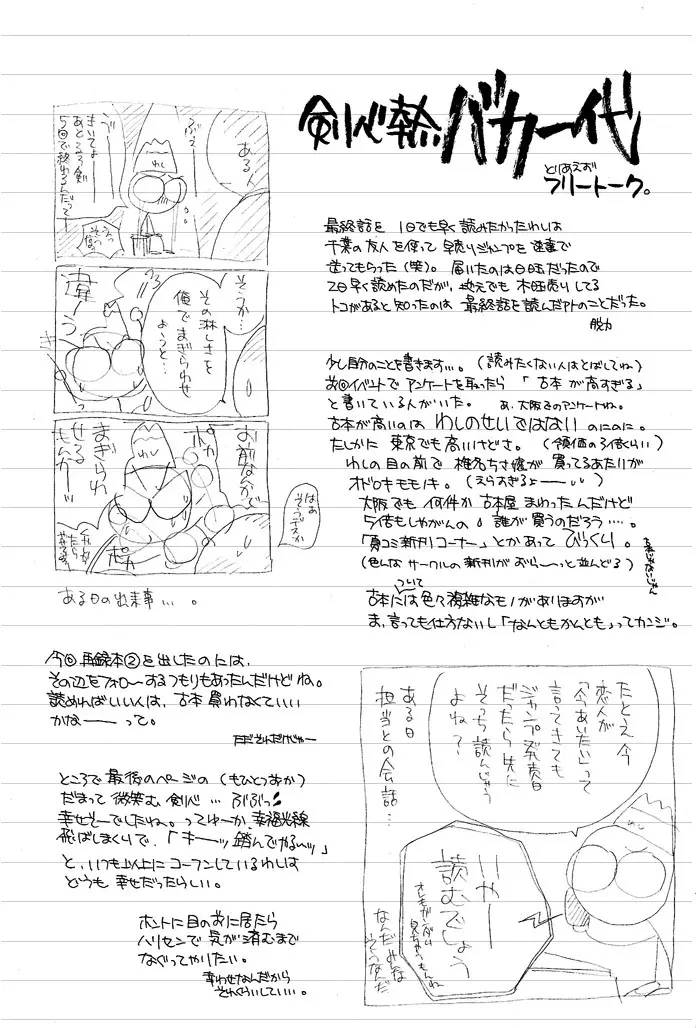 剣心熱バカ一代
とりあえず
フリートーク。
ある人
ぶえ
きいてよー
あとるろ剣
5回で終わるんだってー
わし
そうか…
その淋しさを
俺でまぎらわせ
ようと…
違ーう
お前なんかで
まぎらわ
せる
もんかーッ
ポカ
ポカ
はあ
そうデスか
ある日の出来事…。
最終話を 1日でも早く読みたかったわしは
千葉の友人を使って早売りジャンプを速達で
送ってもらった(笑)。届いたのは日曜だったので
2日早く読めたのだが、地元でも木曜売りしてる
トコがあると知ったのは 最終話を読んだアトのことだった。
脱力
少し自分のことを書きます…。(読みたくない人はとばしてね)
前回イベントでアンケートを取ったら 「古本が高すぎる」
と書いている人がいた。 あ、大阪でのアンケートね。
古本が高いのは わしのせいではない のにのに。
たしかに 東京でも高いけどさ。(領価の3倍くらい)
わしの目の前で 椎名ちさ嬢が 買ってるあたりが
オドロキモモノキ。(えらすぎるよーー)
大阪でも 何件か古本屋 まわったんだけど
5倍もしやがんの。誰が買うのだろう…。
「同コミ新刊コーナー」とかあって びっくり。
(色んな サークルの新刊が おら〜〜っと並んどる)
古本については色々複雑なモノがありますが
ま、言っても仕方ないし「なんともかんとも」ってカンジ。
今回 再録本②を出したのには、
その辺をフォローするつもりもあったんだけどね。
読めればいいい人は、古本買わなくていい
かなーー って。
ただそんだけじゃー
ところで 最後のページの (もひとつまか)
だまって 微笑む 剣心 … ぶぶっ
幸せそーでしたね。ってゆーか、幸福光線
飛ばしまくりで、「キーーッ 踏んでやるーッ」
と、いつも以上にコーフンしているわしは
どうも 幸せだったらしい。
ホントに目の前に居たら
ハリセンで 気が済むまで
なぐってやりたい。
幸せなんだから
それぐらいしていい…。
たとえ今
恋人が
「今あいたい」って
言ってきても
ジャンプ発売日
だったら先に
そっち読んじゃう
よね?
ある日
担当との会話…
いやー
読むでしょう
なんだみな
そうなんだ